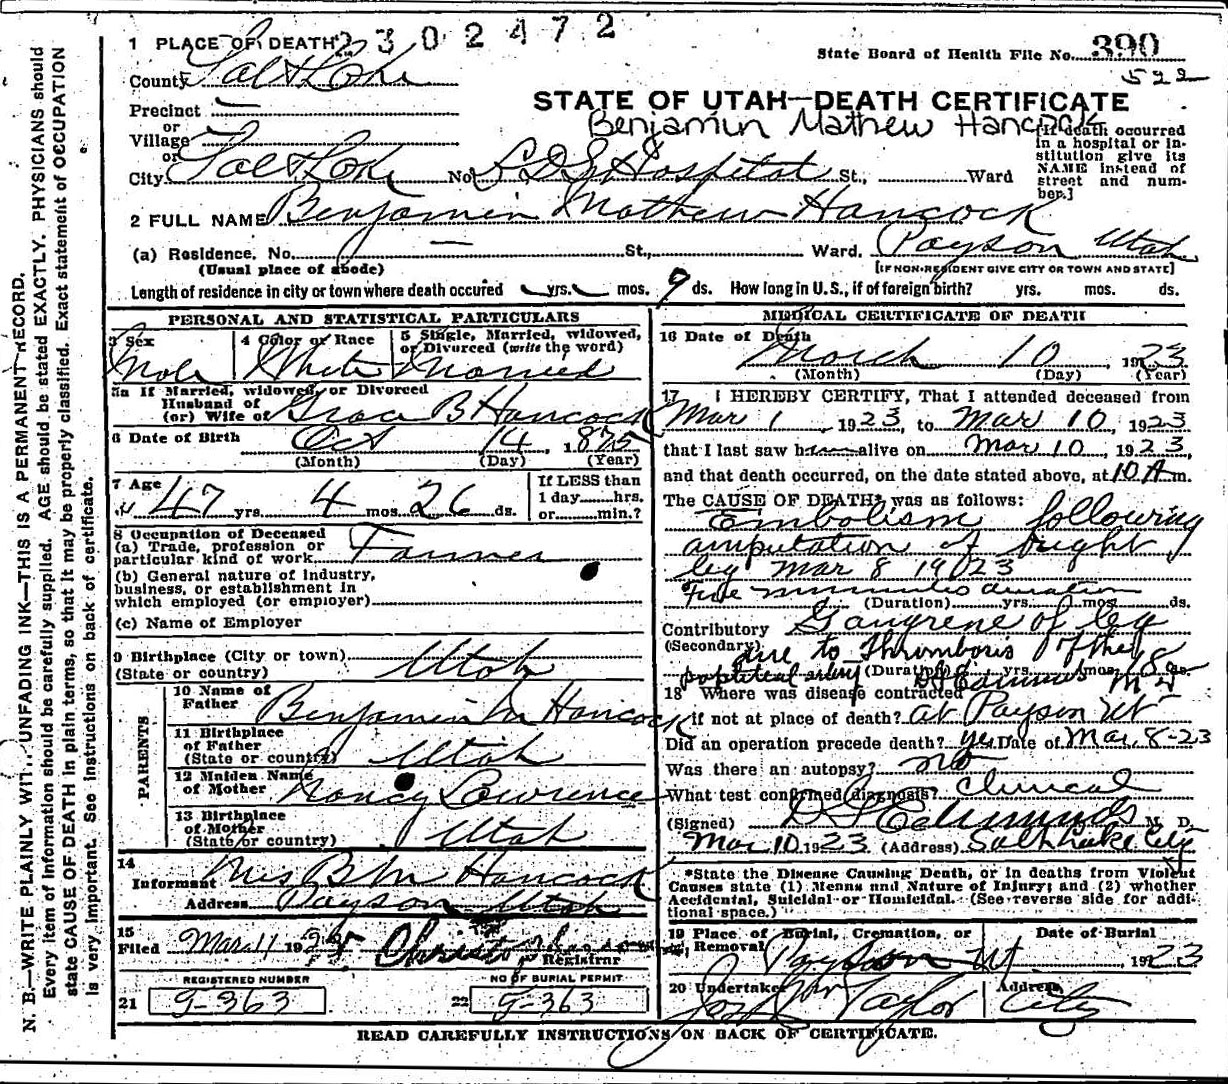 2302472
1 PLACE OF DEATH
State Board of Health File No. 390
522
County Salt Lake
STATE OF UTAH—DEATH CERTIFICATE
Precinct —
Benjamin Mathew Hancock
or
Village
or
[If death occurred in a hospital or institution give its NAME instead of street and number.]
City Salt Lake No. LDS Hospital St., Ward
2 FULL NAME Benjamin Mathew Hancock
(a) Residence. No. — St., Ward. Payson Utah
(Usual place of abode) [IF NON-RESIDENT GIVE CITY OR TOWN AND STATE]
Length of residence in city or town where death occured yrs. mos. 9 ds. How long in U.S., if of foreign birth? yrs. mos. ds.
PERSONAL AND STATISTICAL PARTICULARS
3 Sex Male
4 Color or Race White
5 Single, Married, widowed, or Divorced (write the word) Married
5a If Married, widowed, or Divorced
Husband of
(or) Wife of Grace B Hancock
6 Date of Birth Oct 14 1875
(Month) (Day) (Year)
7 Age
47 yrs. 4 mos. 26 ds.
If LESS than
1 day hrs.
or min.?
8 Occupation of Deceased
(a) Trade, profession or
particular kind of work Farmer
(b) General nature of Industry,
business, or establishment in
which employed (or employer)
(c) Name of Employer
9 Birthplace (City or town)
(State or country) Utah
PARENTS
10 Name of
Father Benjamin M Hancock
11 Birthplace
of Father
(State or country) Utah
12 Maiden Name
of Mother Nancy Lawrence
13 Birthplace
of Mother
(State or country) Utah
14
Informant Mrs B M Hancock
Address Payson Utah
15
Filed Mar 11 1923
Registrar
REGISTERED NUMBER
21 G-363
NO OF BURIAL PERMIT
22 G-363
MEDICAL CERTIFICATE OF DEATH
16 Date of Death
March 10 1923
(Month) (Day) (Year)
17 I HEREBY CERTIFY, That I attended deceased from
Mar 1, 1923, to Mar 10, 1923
that I last saw h alive on Mar 10, 1923,
and that death occurred, on the date stated above, at 10 A m.
The CAUSE OF DEATH* was as follows:
Embolism following
amputation of right
leg Mar 8 1923
Five minutes duration
(Duration) yrs. mos. ds.
Contributory Gangrene of leg
(Secondary) due to Thrombosis of the
popliteal artery (Duration) yrs. mos. 8 ds.
D Edmunds M D
18 Where was disease contracted
if not at place of death? at Payson Ut
Did an operation precede death? yes Date of Mar. 8-23
Was there an autopsy? no
What test confirmed diagnosis? Clinical
(Signed) Edmunds M. D.
Mar 10 1923 (Address) Salt Lake City
*State the Disease Causing Death, or in deaths from Violent
Causes state (1) Means and Nature of Injury; and (2) whether
Accidental, Suicidal or Homicidal. (See reverse side for addi-
tional space.)
19 Place of Burial, Cremation, or
Removal Payson Ut
Date of Burial
1923
20 Undertaker Jos Wm Taylor
Address City
READ CAREFULLY INSTRUCTIONS ON BACK OF CERTIFICATE.
N. B.—WRITE PLAINLY WITH UNFADING INK—THIS IS A PERMANENT RECORD.
Every item of information should be carefully supplied. AGE should be stated EXACTLY. PHYSICIANS should
state CAUSE OF DEATH in plain terms, so that it may be properly classified. Exact statement of OCCUPATION
is very important. See instructions on back of certificate.